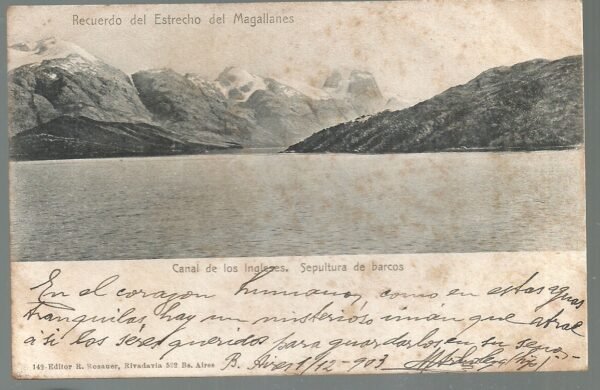 Recuerdo del Estrecho del Magallanes
Canal de los Ingleses. Sepultura de barcos
En el corazon humano, como en estas aguas
tranquilas, hay un misterioso iman que atrae
á si los séres queridos para guardarlos en su seno.
149-Editor R. Rosauer, Rivadavia 522 Bs. Aires
B. Aires 1/12-903